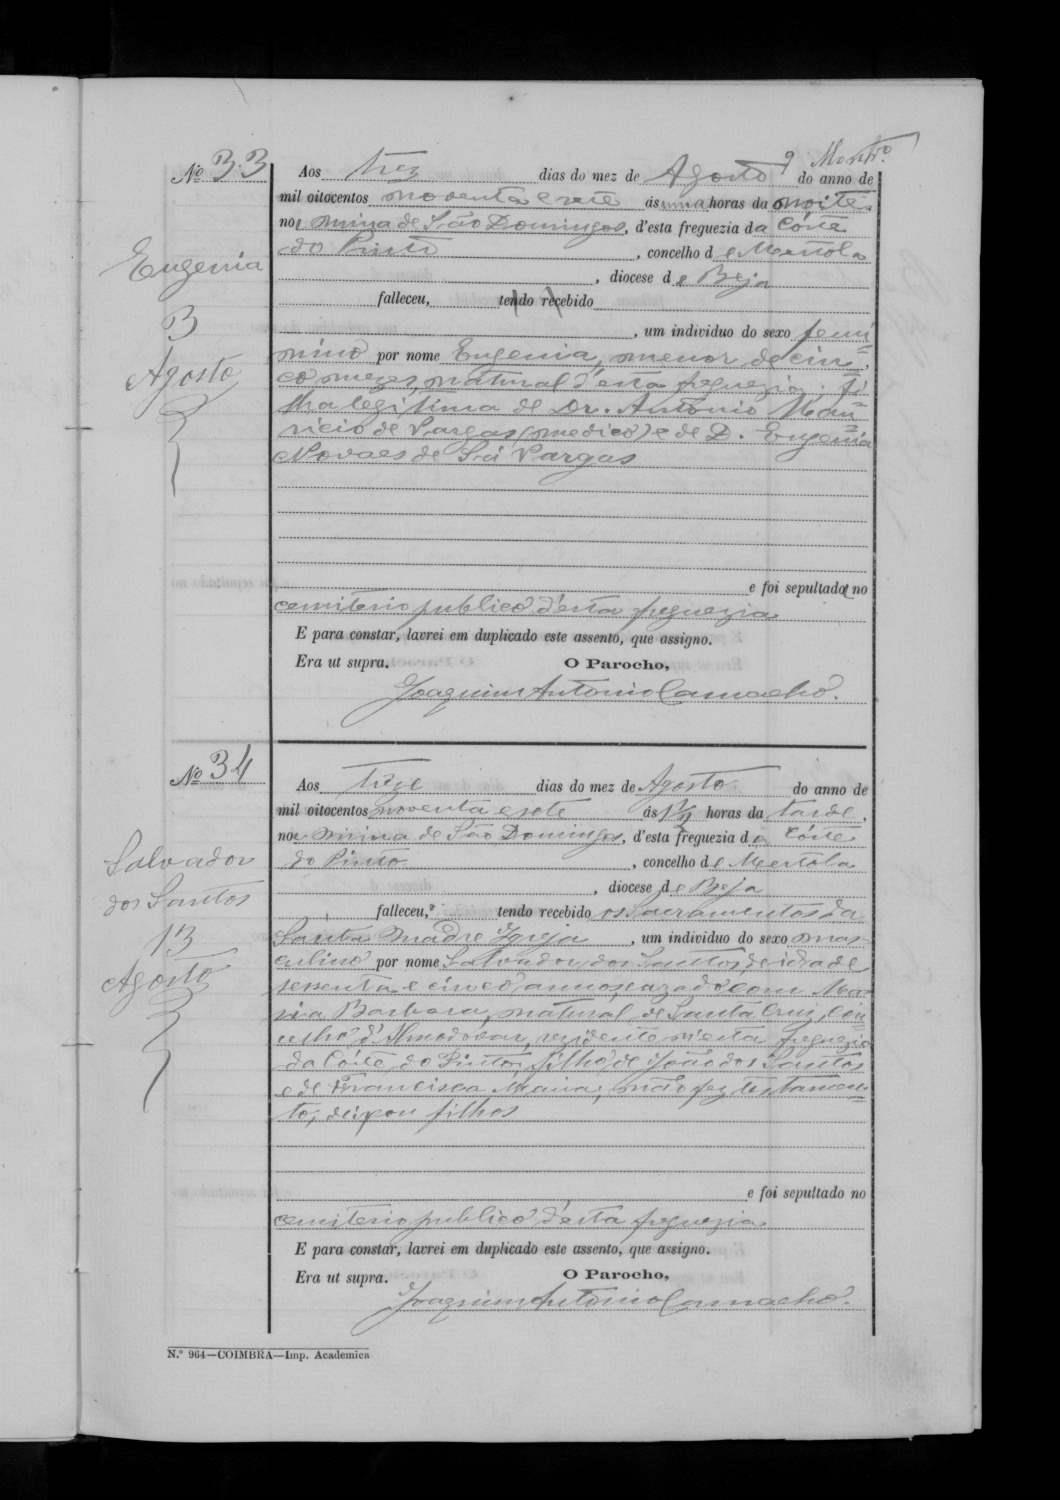 9 Montr.º
Nº 33
Aos trez dias do mez de Agosto do anno de
mil oitocentos noventa e sete ás uma horas da noite
na mina de São Domingos, d'esta freguezia da Côrte
do Pinto, concelho de Mertola
, diocese de Beja
falleceu, tendo recebido
, um individuo do sexo femi=
nino por nome Eugenia, menor de cin=
co mezes, natural d'esta freguezia, fi=
lha legitima de Dr. Antonio Mau=
ricio de Vargas (medico) e de D. Eugenia
Novaes de Sá Vargas
e foi sepultada no
cemiterio publico d'esta freguezia
E para constar, lavrei em duplicado este assento, que assigno.
Era ut supra. O Parocho,
Joaquim Antonio Camacho.
Eugenia
3
Agosto
Nº 34
Aos treze dias do mez de Agosto do anno de
mil oitocentos noventa e sete ás horas da tarde,
na mina de São Domingos, d'esta freguezia da Côrte
do Pinto, concelho de Mertola
, diocese de Beja
falleceu, tendo recebido os Sacramentos da
Santa Madre Igreja, um individuo do sexo mas=
culino por nome Salvador dos Santos, de idade
sessenta e cinco annos, cazado com Ma=
ria Barbara, natural de Santa Cruz, con=
celho d'Almodovar, rezidente n'esta freguezia
da Côrte do Pinto, filho de João dos Santos
e de Francisca Maria, não fez testamen=
to, deixou filhos
e foi sepultado no
cemiterio publico d'esta freguezia
E para constar, lavrei em duplicado este assento, que assigno.
Era ut supra. O Parocho,
Joaquim Antonio Camacho.
Salvador
dos Santos
13
Agosto
N.º 964—COIMBRA—Imp. Academica